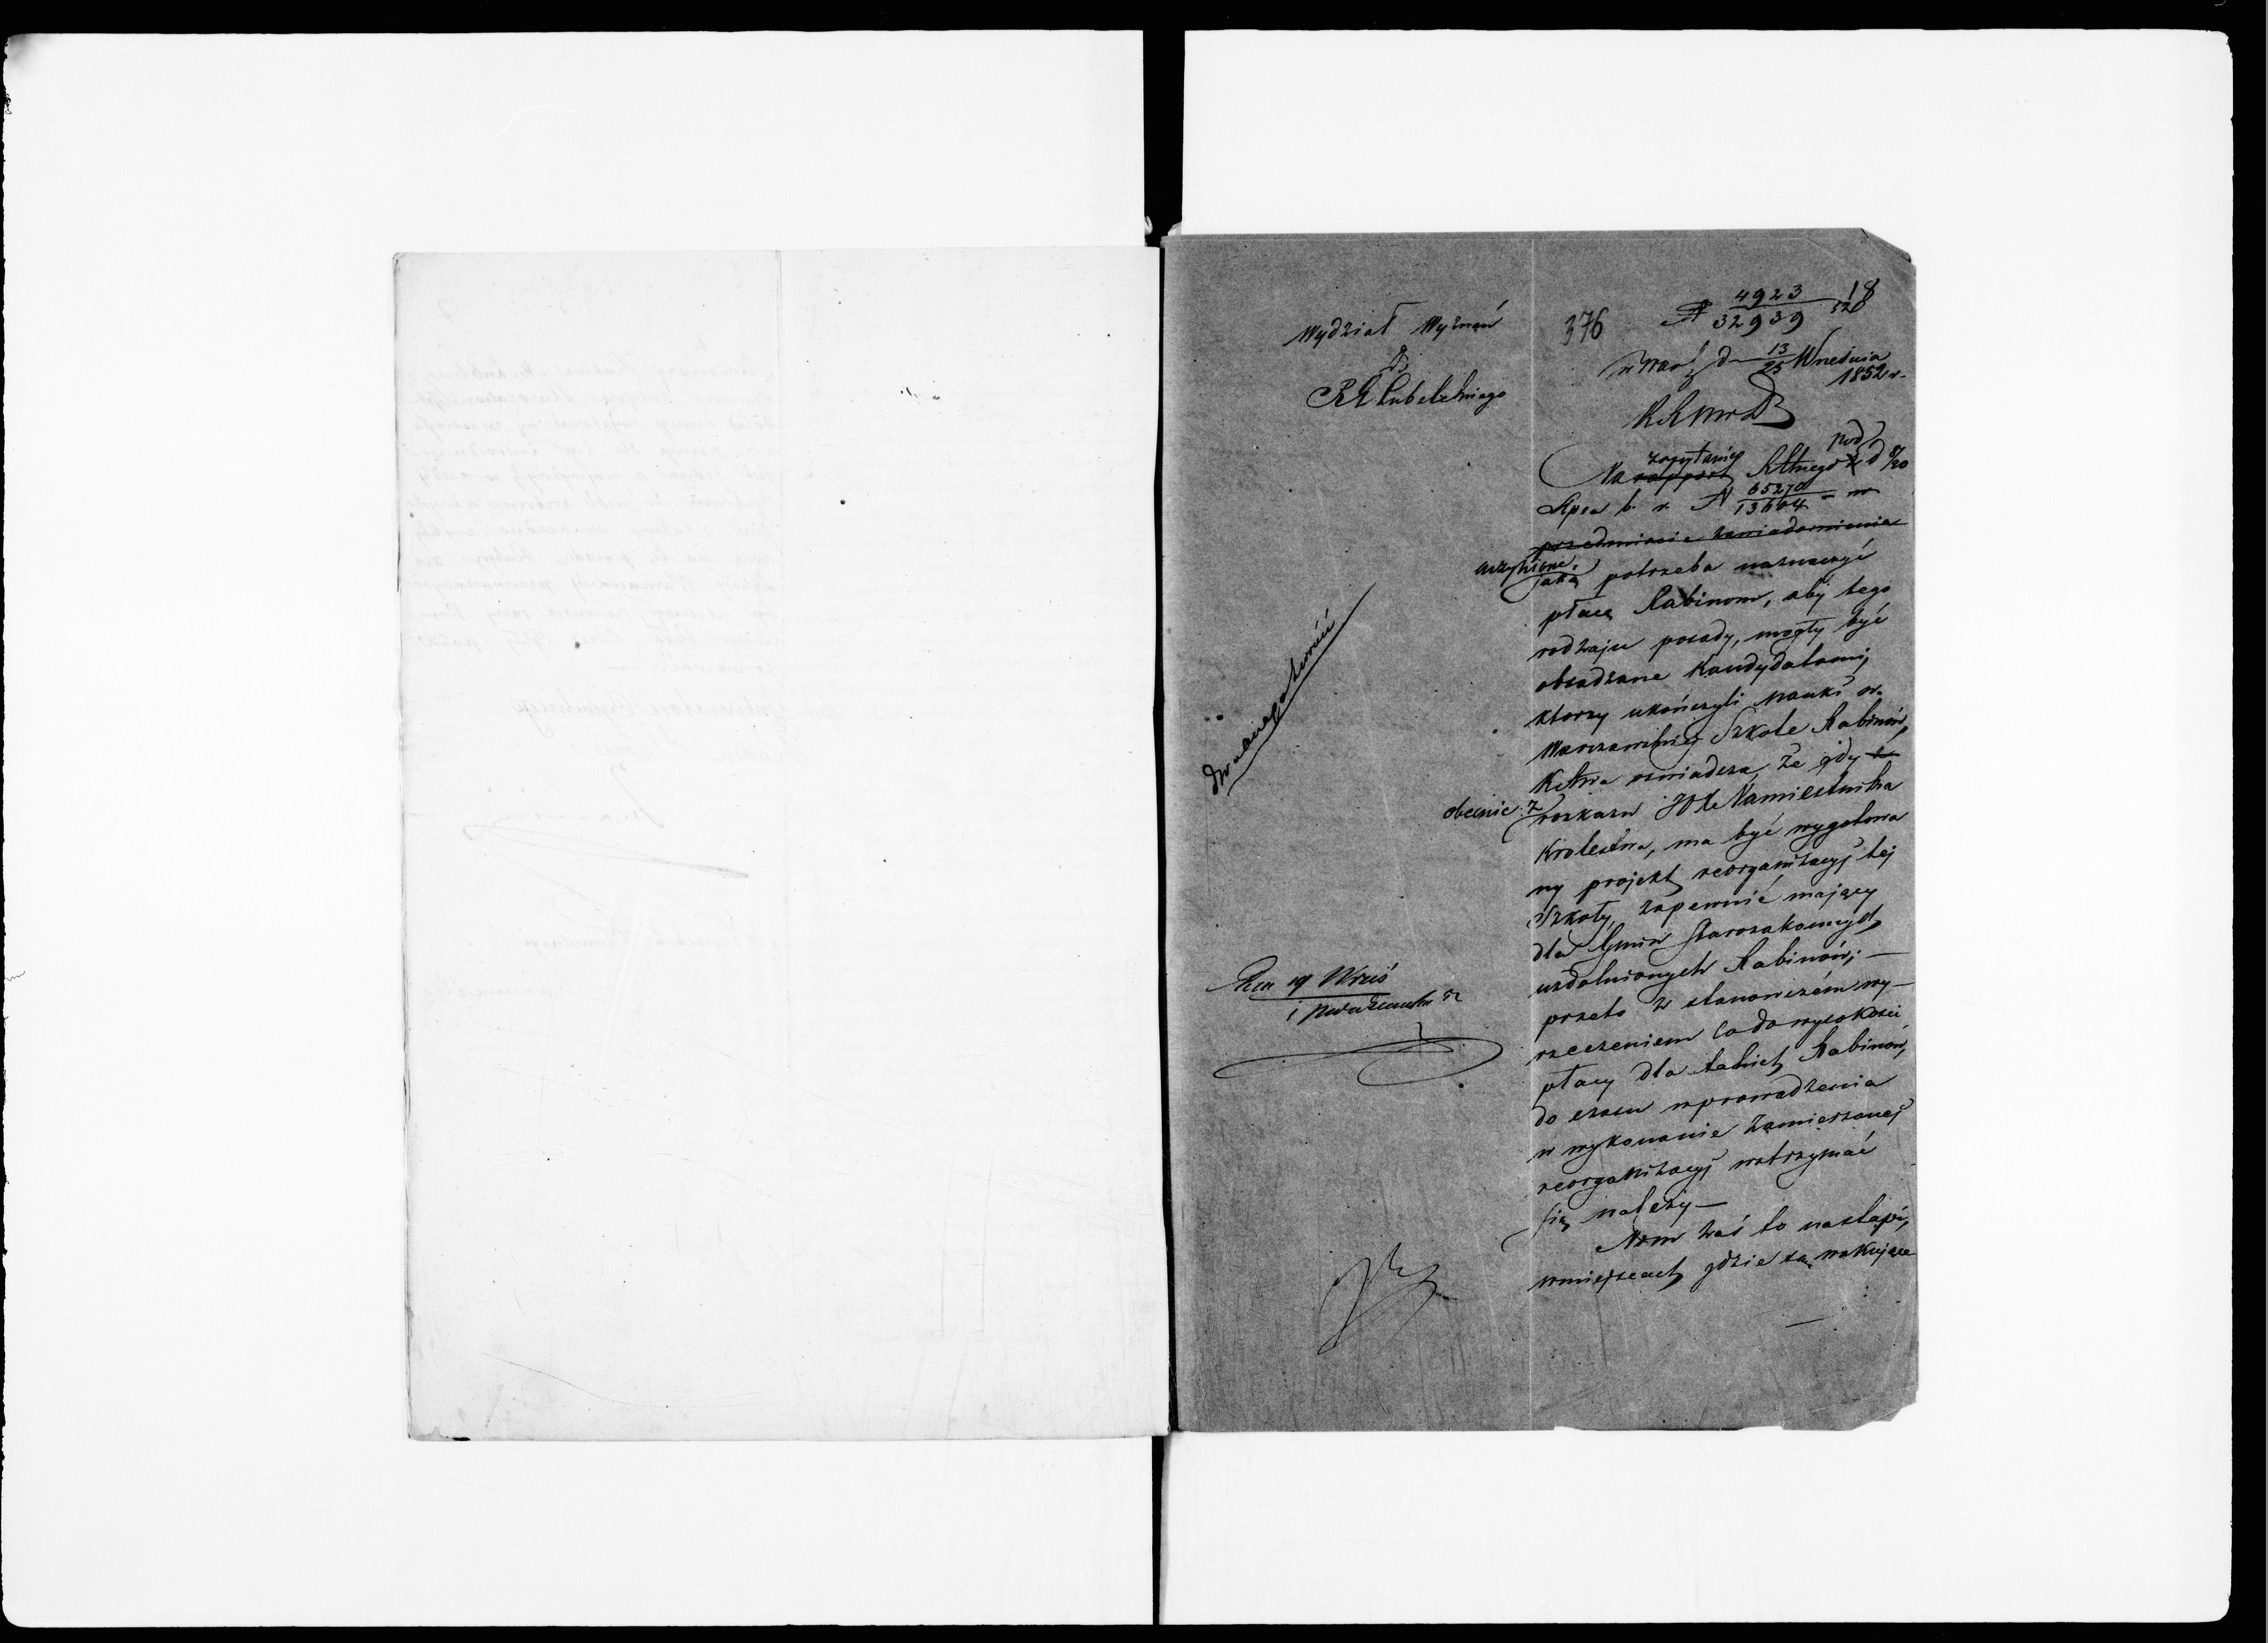 Wydział Wyznań
Do
RG Lubelskiego
376
N 4923/32939 18
52
w War. d 13/25 Września
1852 r.
K R S W i D
zapytanie pod
Na rapport RGtnego z d 8/20
Lipca b. r. N 65270/13664 = w
przedmiocie zawiadomienia
uczynione:
jaką potrzeba naznaczyć
płacę Rabinom, aby tego
rodzaju posady, mogły być
obsadzane Kandydatami,
ktorzy ukończyli nauki w.
Warszawskiej Szkole Rabinów,
oświadcza, że gdy
obecnie z
rozkazu JO Xcia Namiestnika
Krolestwa, ma być wygotowa
ny projekt reorganizacyj tej
Szkoły, zapewnić mający
dla Gmin Starozakonnych
uzdolnionych Rabinów; —
przeto z stanowczém wy—
rzeczeniem co do wysokości
płacy dla takich Rabinów,
do czasu wprowadzenia
w wykonanie zamierzonej
reorganizacyj wstrzymać
się należy —
Nim zaś to nastąpi,
w miejscach gdzie są wakujące
19 Wrześ